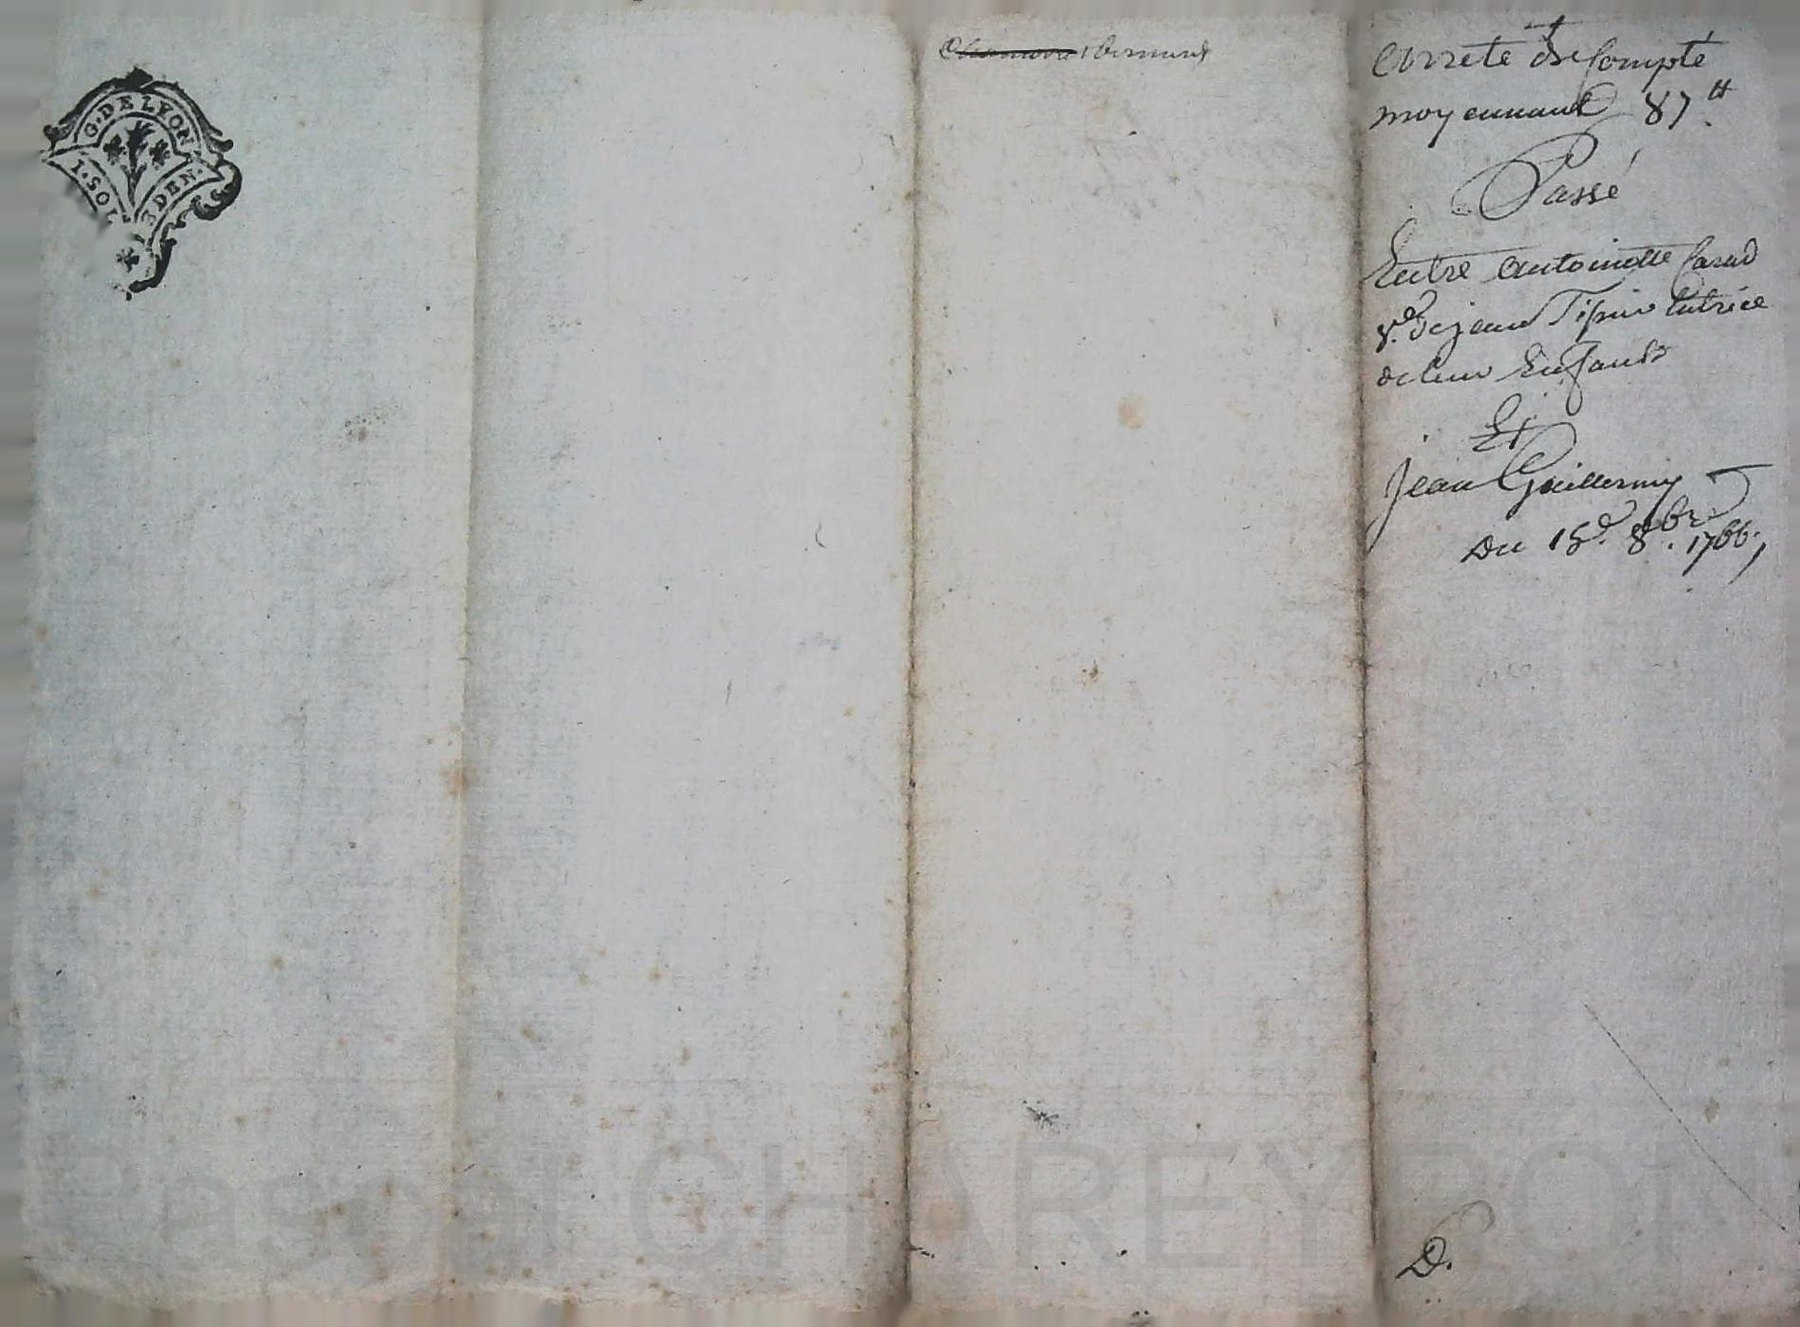 G. DE LYON
1. SOL 3 DEN.
bernard
Arreté de Compte
moyennant 87 tt
Passé
Entre Antoinette
ve. de jean Tissier tutrice
de leur Enfants
Et
jean Guillermy
Du 15e. 8bre. 1766,
D.
Pascal CHAREYRON